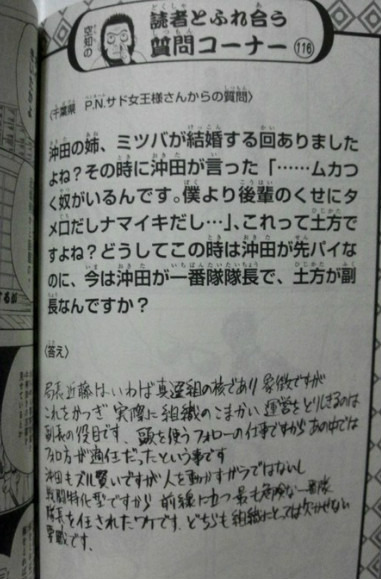 空知の
読者とふれ合う
質問コーナー 116
〈千葉県 P.N.サド女王様さんからの質問〉
沖田の姉、ミツバが結婚する回ありました
よね?その時に沖田が言った「……ムカつ
く奴がいるんです。僕より後輩のくせにタ
メ口だしナマイキだし…」、これって土方で
すよね?どうしてこの時は沖田が先パイな
のに、今は沖田が一番隊隊長で、土方が副
長なんですか?
〈答え〉
局長近藤はいわば真選組の核であり象徴ですが
これをかつぎ実際に組織のこまかい運営をとりしきるのは
副長の役目です、頭を使うフォローの仕事ですからあの中では
土方が適任だったという事です
沖田もズル賢いですが人を動かすガラではないし
戦闘特化型ですから前線に立つ最も危険な一番隊
隊長を任されたワケです。どちらも組織にとっては欠かせない
要職です。